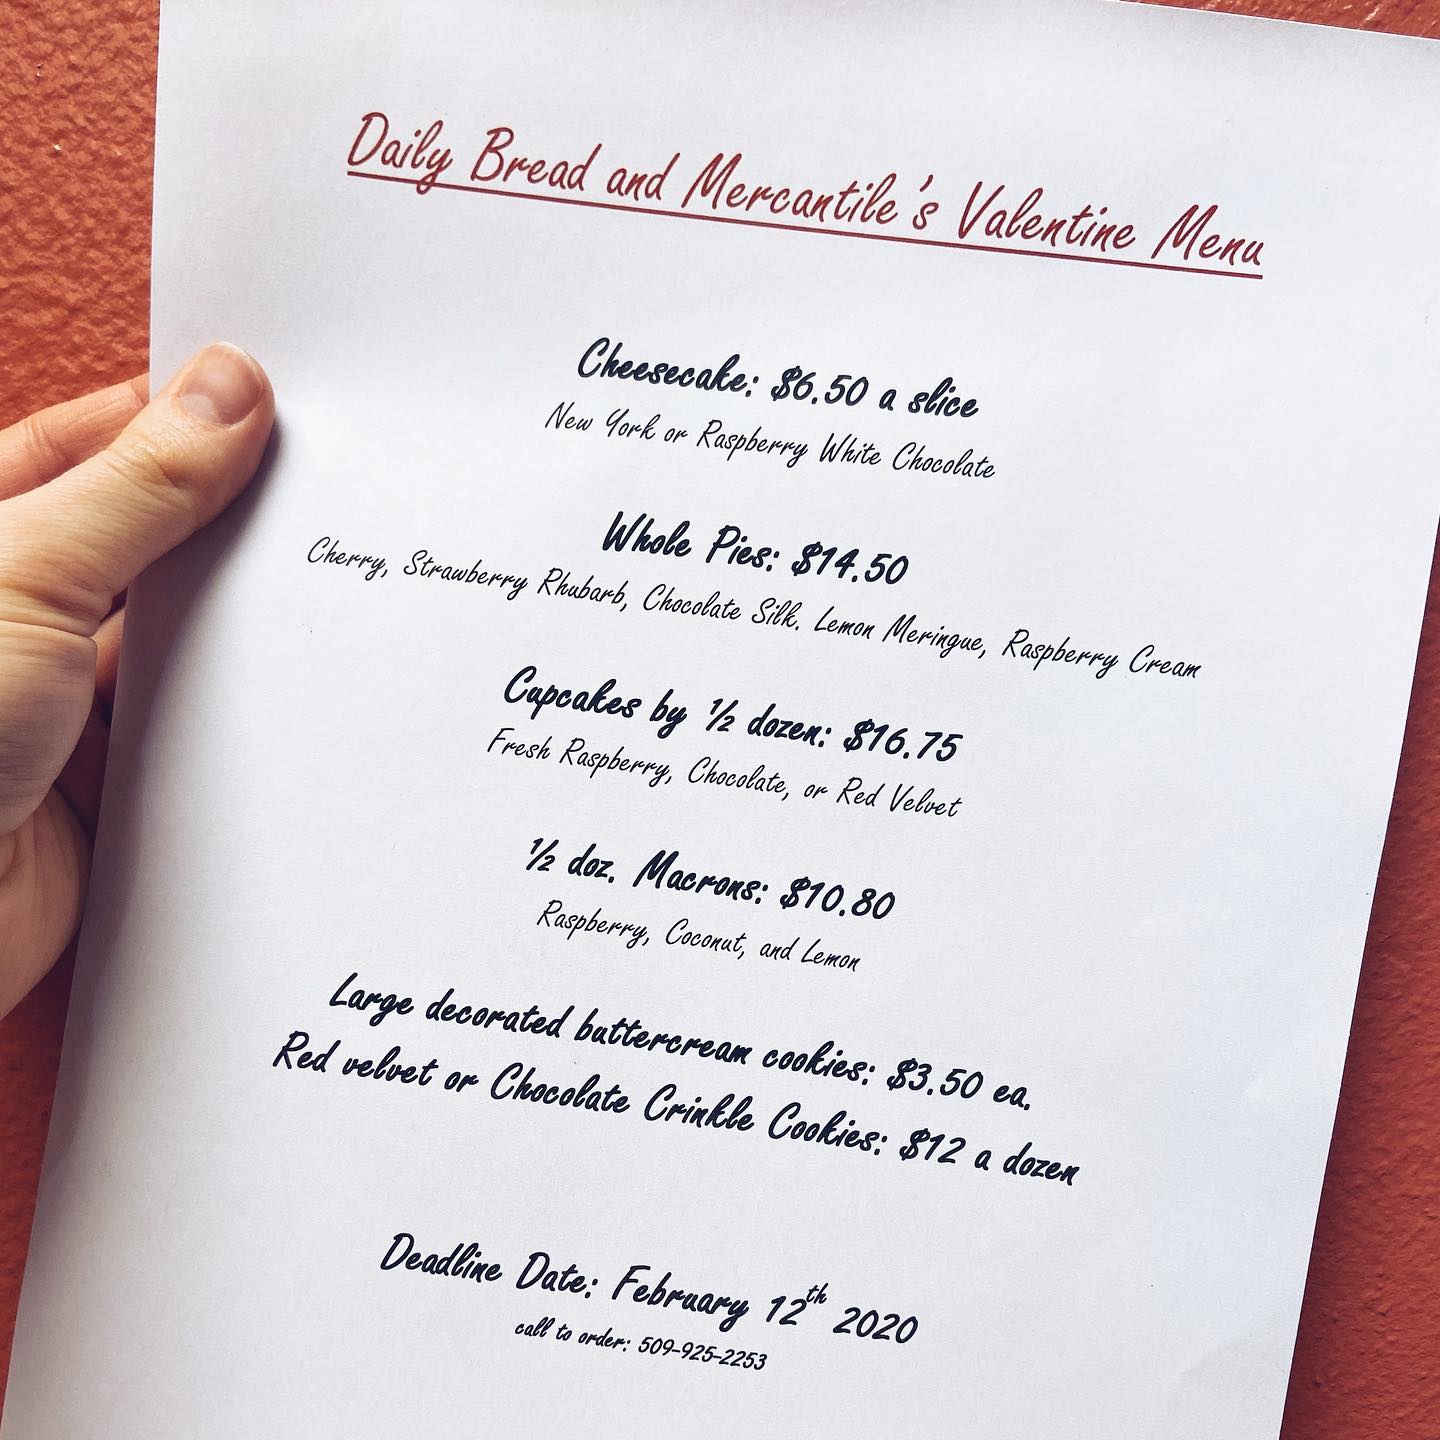 Daily Bread and Mercantile's Valentine Menu
Cheesecake: $6.50 a slice
New York or Raspberry White Chocolate
Whole Pies: $14.50
Cherry, Strawberry Rhubarb, Chocolate Silk. Lemon Meringue, Raspberry Cream
Cupcakes by ½ dozen: $16.75
Fresh Raspberry, Chocolate, or Red Velvet
½ doz. Macrons: $10.80
Raspberry, Coconut, and Lemon
Large decorated buttercream cookies: $3.50 ea.
Red velvet or Chocolate Crinkle Cookies: $12 a dozen
Deadline Date: February 12th 2020
call to order: 509-925-2253